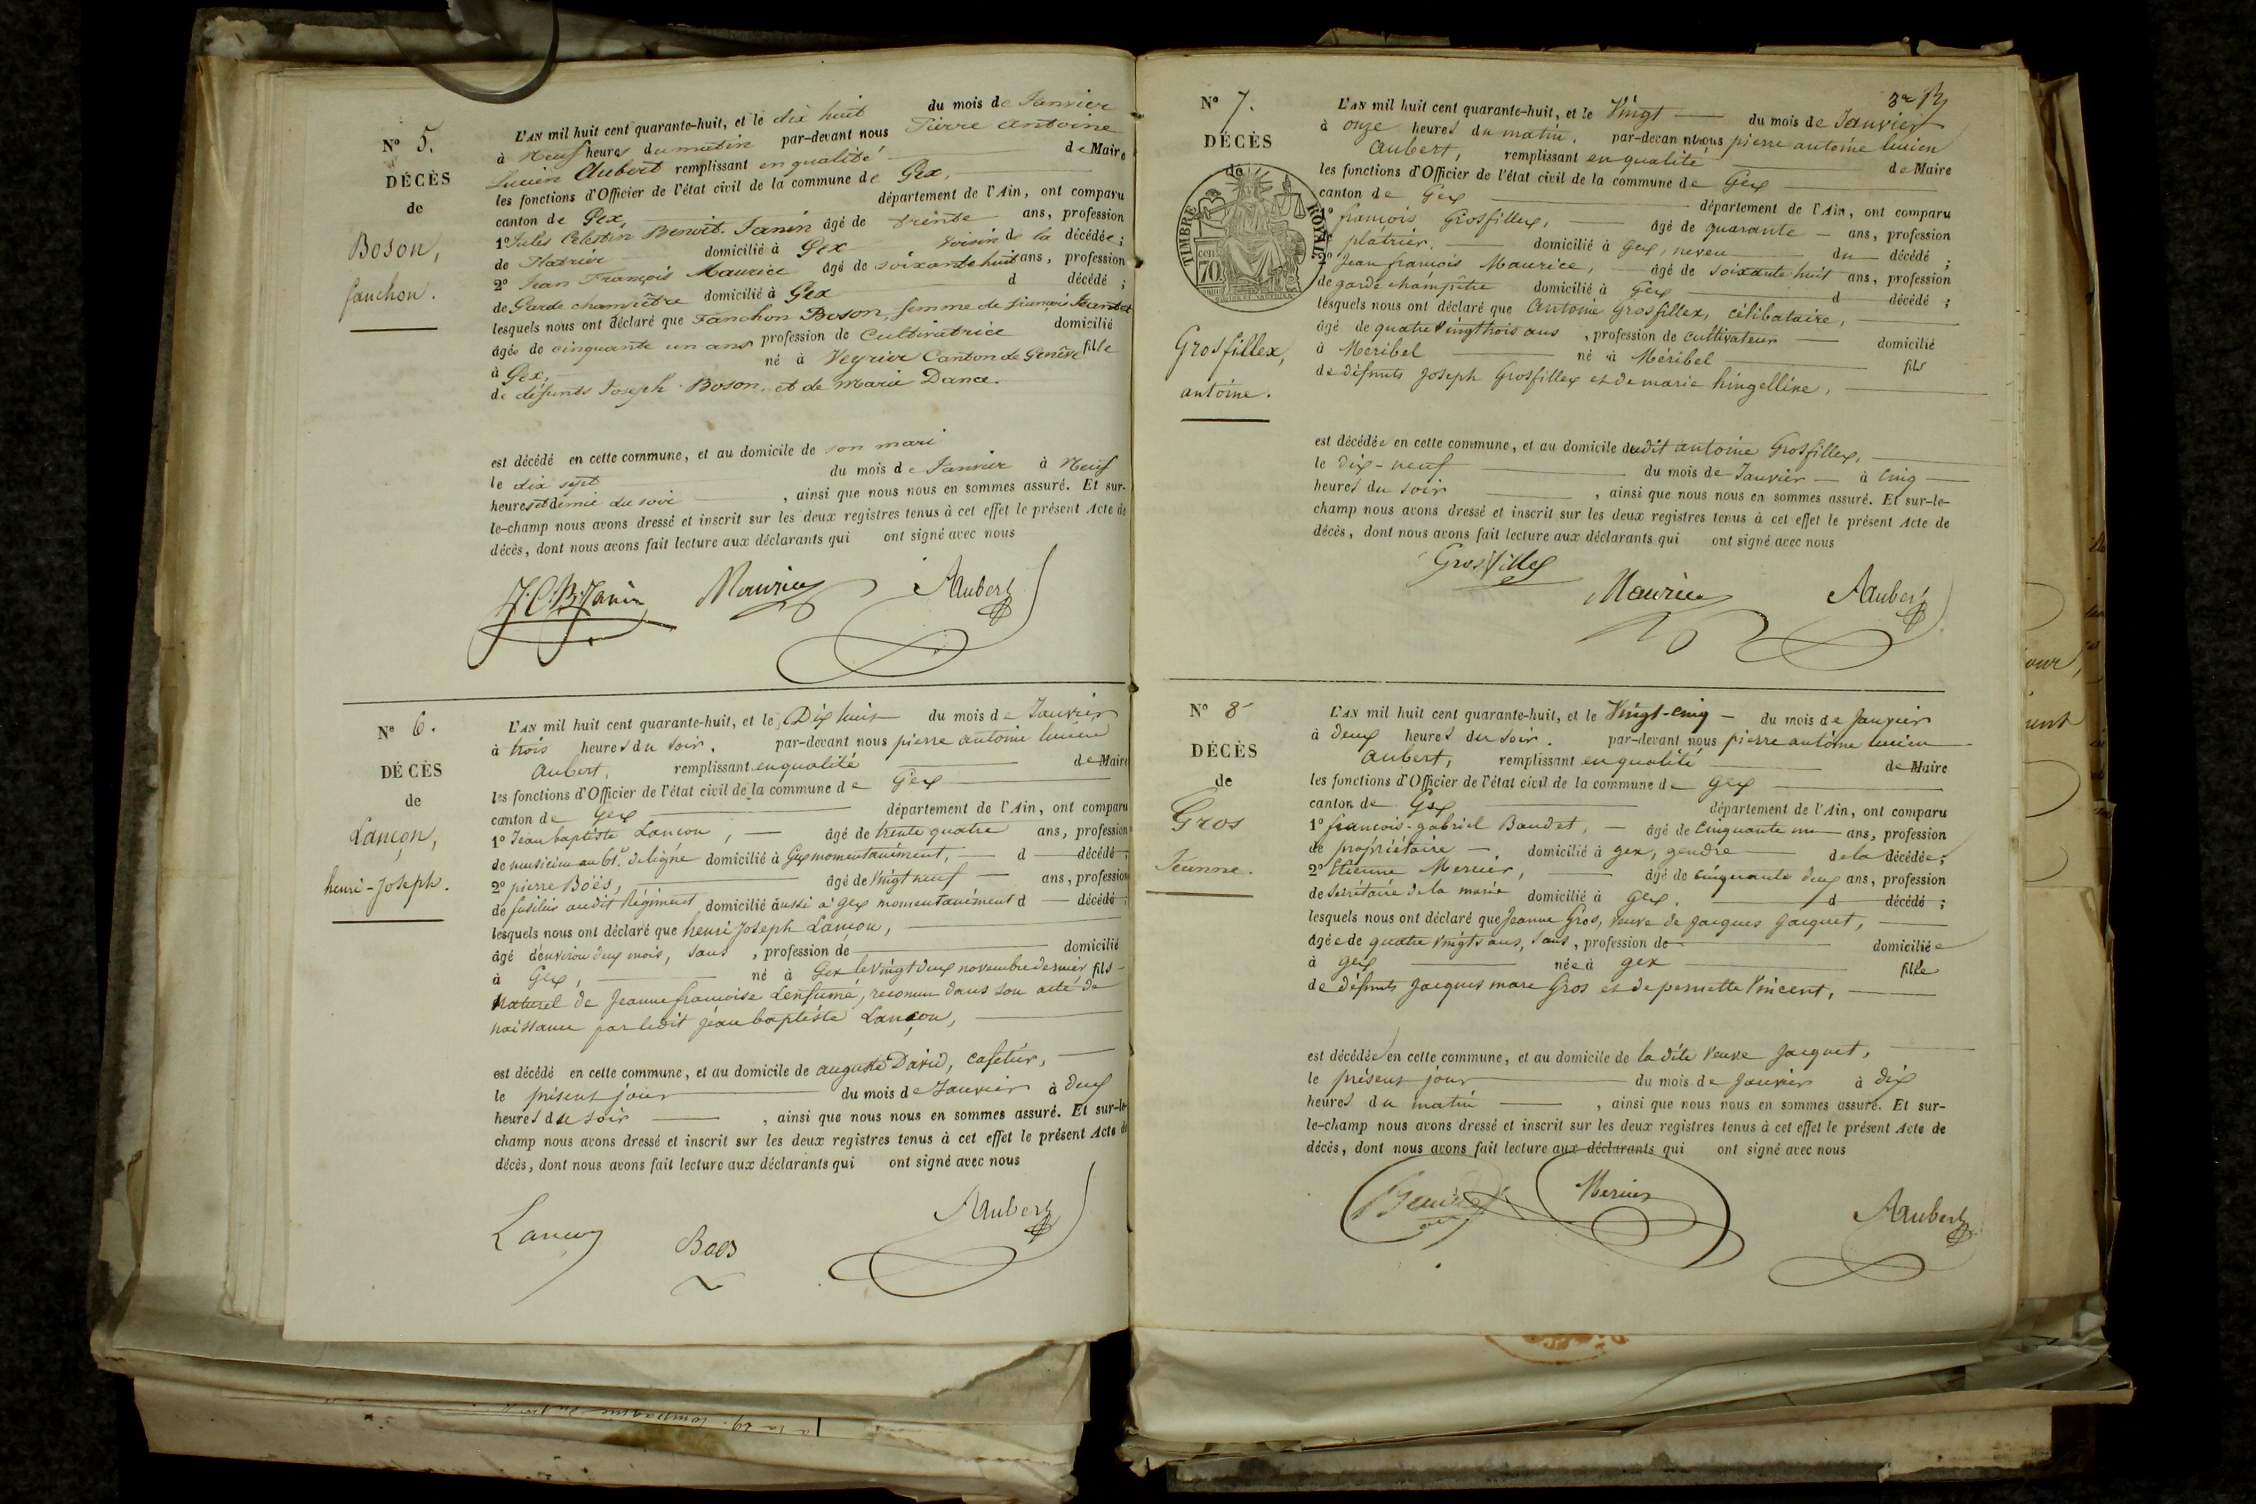 N° 5.
DÉCÈS
de
Boson,
fanchon.
L'AN mil huit cent quarante-huit, et le dix huit du mois de Janvier
à Neuf heures du matin par-devant nous Pierre Antoine
Lucien Aubert remplissant en qualité de Maire
les fonctions d'Officier de l'état civil de la commune de Gex,
canton de Gex, département de l'Ain, ont comparu
1° Jules Célestin Benoit Janin âgé de trente ans, profession
de Platrier domicilié à Gex voisin de la décédée;
2° Jean François Maurice âgé de soixante huit ans, profession
de Garde champêtre domicilié à Gex d décédé ;
lesquels nous ont déclaré que Fanchon Boson, femme de françois
âgée de cinquante un ans profession de Cultivatrice domicilié
à Gex, né à Veyrier Canton de Genêve fille
de défunts Joseph Boson, et de Marie Dance.
est décédé en cette commune, et au domicile de son mari
le dix sept du mois de Janvier à Neuf
heures et demie du soir , ainsi que nous nous en sommes assuré. Et sur-
le-champ nous avons dressé et inscrit sur les deux registres tenus à cet effet le présent Acte de
décès, dont nous avons fait lecture aux déclarants qui ont signé avec nous
J. C. B. Janin Maurice AAubert
N° 6.
DÉCÈS
de
Lançon,
henri-Joseph.
L'AN mil huit cent quarante-huit, et le Dix huit du mois de Janvier
à trois heures du soir. par-devant nous pierre antoine lucien
Aubert, remplissant en qualité de Maire
les fonctions d'Officier de l'état civil de la commune de Gex
canton de Gex département de l'Ain, ont comparu
1° Jean baptiste Lançon, âgé de trente quatre ans, profession
de musicien au 61e de ligne domicilié à Gex momentanément, d décédé ;
2° pierre Boës, âgé de Vingt neuf ans, profession
de fusilier audit Régiment domicilié aussi à Gex momentanément d décédé ;
lesquels nous ont déclaré que henri Joseph Lançon,
âgé d'environ deux mois, sans , profession de domicilié
à Gex, né à Gex le vingt deux novembre dernier fils
naturel de Jeanne françoise Lenfumé, reconnu dans son acte de
naissance par ledit Jean baptiste Lançon,
est décédé en cette commune, et au domicile de auguste David, cafetier,
le présent jour du mois de Janvier à deux
heures du soir , ainsi que nous nous en sommes assuré. Et sur-le-
champ nous avons dressé et inscrit sur les deux registres tenus à cet effet le présent Acte de
décès, dont nous avons fait lecture aux déclarants qui ont signé avec nous
Lançon Boës AAubert
N° 7.
DÉCÈS
de
TIMBRE ROYAL
70
Grosfillex,
antoine.
L'AN mil huit cent quarante-huit, et le Vingt du mois de Janvier
à onze heures du matin. par-devant nous pierre antoine lucien
Aubert, remplissant en qualité de Maire
les fonctions d'Officier de l'état civil de la commune de Gex
canton de Gex département de l'Ain, ont comparu
1° françois Grosfillex, âgé de quarante ans, profession
de plâtrier. domicilié à Gex, neveu du décédé ;
2° Jean françois Maurice, âgé de soixante huit ans, profession
de garde champêtre domicilié à Gex d décédé ;
lesquels nous ont déclaré que Antoine Grosfillex, célibataire,
âgé de quatre Vingt trois ans , profession de cultivateur domicilié
à Meribel né à Méribel fils
de défunts Joseph Grosfillex et de marie hingelline,
est décédée en cette commune, et au domicile dudit antoine Grosfillex,
le dix-neuf du mois de Janvier à Cinq
heures du soir , ainsi que nous nous en sommes assuré. Et sur-le-
champ nous avons dressé et inscrit sur les deux registres tenus à cet effet le présent Acte de
décès, dont nous avons fait lecture aux déclarants qui ont signé avec nous
Grosfillex Maurice AAubert
N° 8
DÉCÈS
de
Gros
Jeanne.
L'AN mil huit cent quarante-huit, et le Vingt-cinq du mois de Janvier
à Deux heures du soir. par-devant nous pierre antoine lucien
Aubert, remplissant en qualité de Maire
les fonctions d'Officier de l'état civil de la commune de Gex
canton de Gex département de l'Ain, ont comparu
1° françois-gabriel Baudet, âgé de Cinquante un ans, profession
de propriétaire domicilié à gex, gendre de la décédée;
2° Etienne Mercier, âgé de cinquante deux ans, profession
de Secrétaire de la mairie domicilié à Gex, d décédé ;
lesquels nous ont déclaré que Jeanne Gros, veuve de Jacques Jacquet,
âgée de quatre Vingts ans, sans, profession de domiciliée
à gex née à gex fille
de défunts Jacques marc Gros et de pernette Vincent,
est décédée en cette commune, et au domicile de la dite Veuve Jacquet,
le présent jour du mois de Janvier à dix
heures du matin , ainsi que nous nous en sommes assuré. Et sur-
le-champ nous avons dressé et inscrit sur les deux registres tenus à cet effet le présent Acte de
décès, dont nous avons fait lecture aux déclarants qui ont signé avec nous
Baudet Mercier AAubert